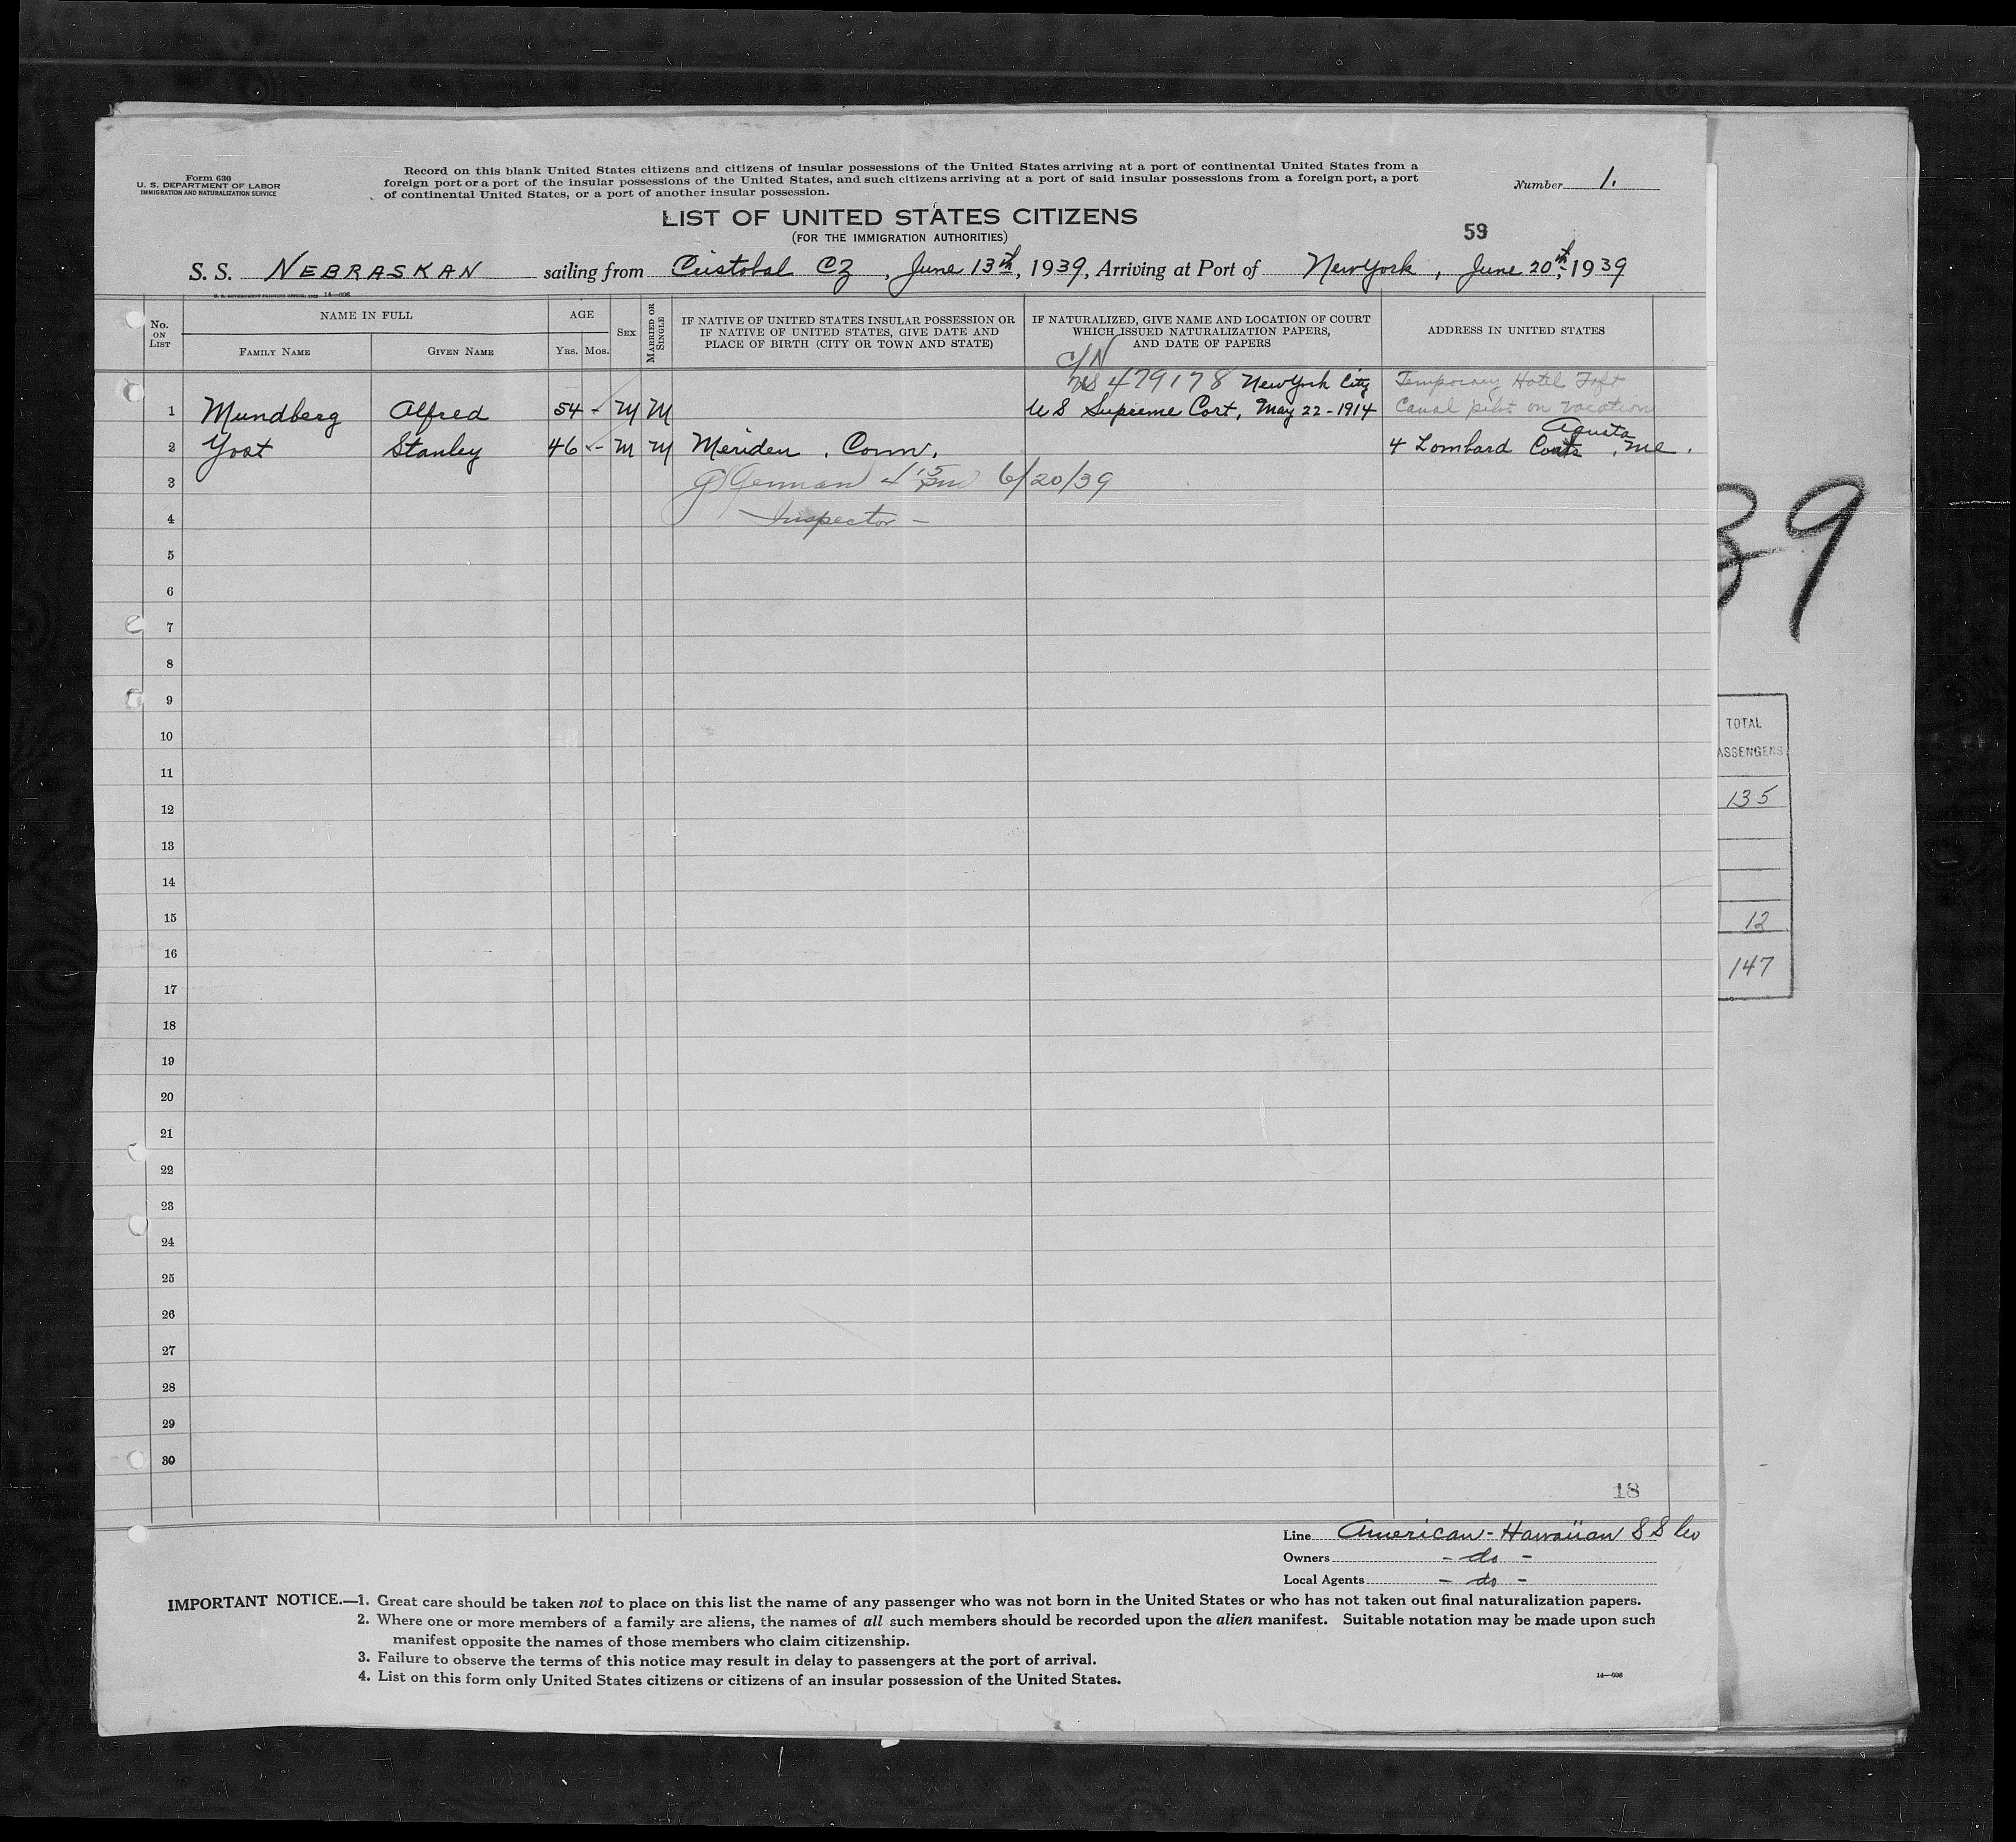 Form 630
U. S. DEPARTMENT OF LABOR
IMMIGRATION AND NATURALIZATION SERVICE
Record on this blank United States citizens and citizens of insular possessions of the United States arriving at a port of continental United States from a
foreign port or a port of the insular possessions of the United States, and such citizens arriving at a port of said insular possessions from a foreign port, a port
of continental United States, or a port of another insular possession.
Number 1.
LIST OF UNITED STATES CITIZENS
(FOR THE IMMIGRATION AUTHORITIES)
59
S. S. NEBRASKAN sailing from Cristobal CZ, June 13th, 1939, Arriving at Port of New York, June 20th, 1939
14—608
No. ON LIST
NAME IN FULL
FAMILY NAME
GIVEN NAME
AGE
YRS. MOS.
SEX
MARRIED OR SINGLE
IF NATIVE OF UNITED STATES INSULAR POSSESSION OR
IF NATIVE OF UNITED STATES, GIVE DATE AND
PLACE OF BIRTH (CITY OR TOWN AND STATE)
IF NATURALIZED, GIVE NAME AND LOCATION OF COURT
WHICH ISSUED NATURALIZATION PAPERS,
AND DATE OF PAPERS
ADDRESS IN UNITED STATES
C/N
479178 New York City Temporary Hotel Taft
1 Mundberg Alfred 54 - M M US Supreme Cort, May 22-1914 Canal pilot on vacation
Agusta
2 Yost Stanley 46 - M M Meriden, Conn. 4 Lombard , Me.
3 German 4 15 pm 6/20/39
4 Inspector -
5
6
7
8
9
10
11
12
13
14
15
16
17
18
19
20
21
22
23
24
25
26
27
28
29
30
18
Line American-Hawaiian S S Co
Owners - do -
Local Agents - do -
IMPORTANT NOTICE.—1. Great care should be taken not to place on this list the name of any passenger who was not born in the United States or who has not taken out final naturalization papers.
2. Where one or more members of a family are aliens, the names of all such members should be recorded upon the alien manifest. Suitable notation may be made upon such
manifest opposite the names of those members who claim citizenship.
3. Failure to observe the terms of this notice may result in delay to passengers at the port of arrival.
4. List on this form only United States citizens or citizens of an insular possession of the United States.
14—608
39
TOTAL
ASSENGERS
135
12
147